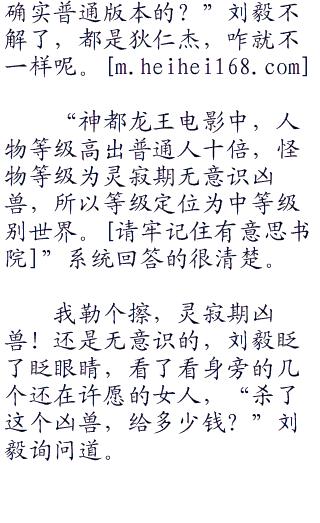 确实普通版本的？”刘毅不
解了，都是狄仁杰，咋就不
一样呢。[m.heihei168.com]
“神都龙王电影中，人
物等级高出普通人十倍，怪
物等级为灵寂期无意识凶
兽，所以等级定位为中等级
别世界。[请牢记住有意思书
院]”系统回答的很清楚。
我勒个擦，灵寂期凶
兽！还是无意识的，刘毅眨
了眨眼睛，看了看身旁的几
个还在许愿的女人，“杀了
这个凶兽，给多少钱？”刘
毅询问道。